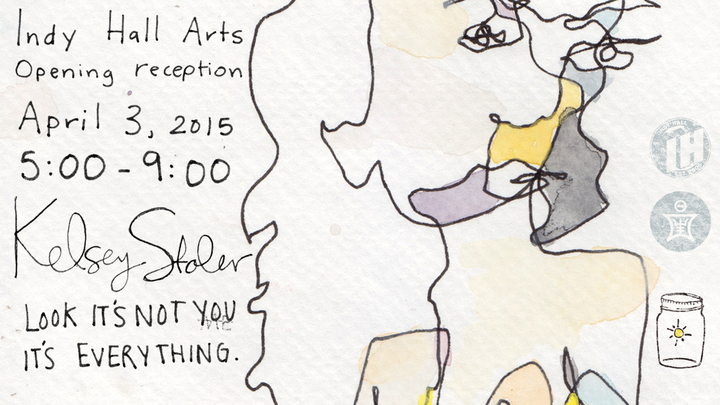 Indy Hall Arts
Opening reception
April 3, 2015
5:00 - 9:00
Kelsey Stoler
LOOK IT'S NOT YOU
ME
IT'S EVERYTHING.
IH